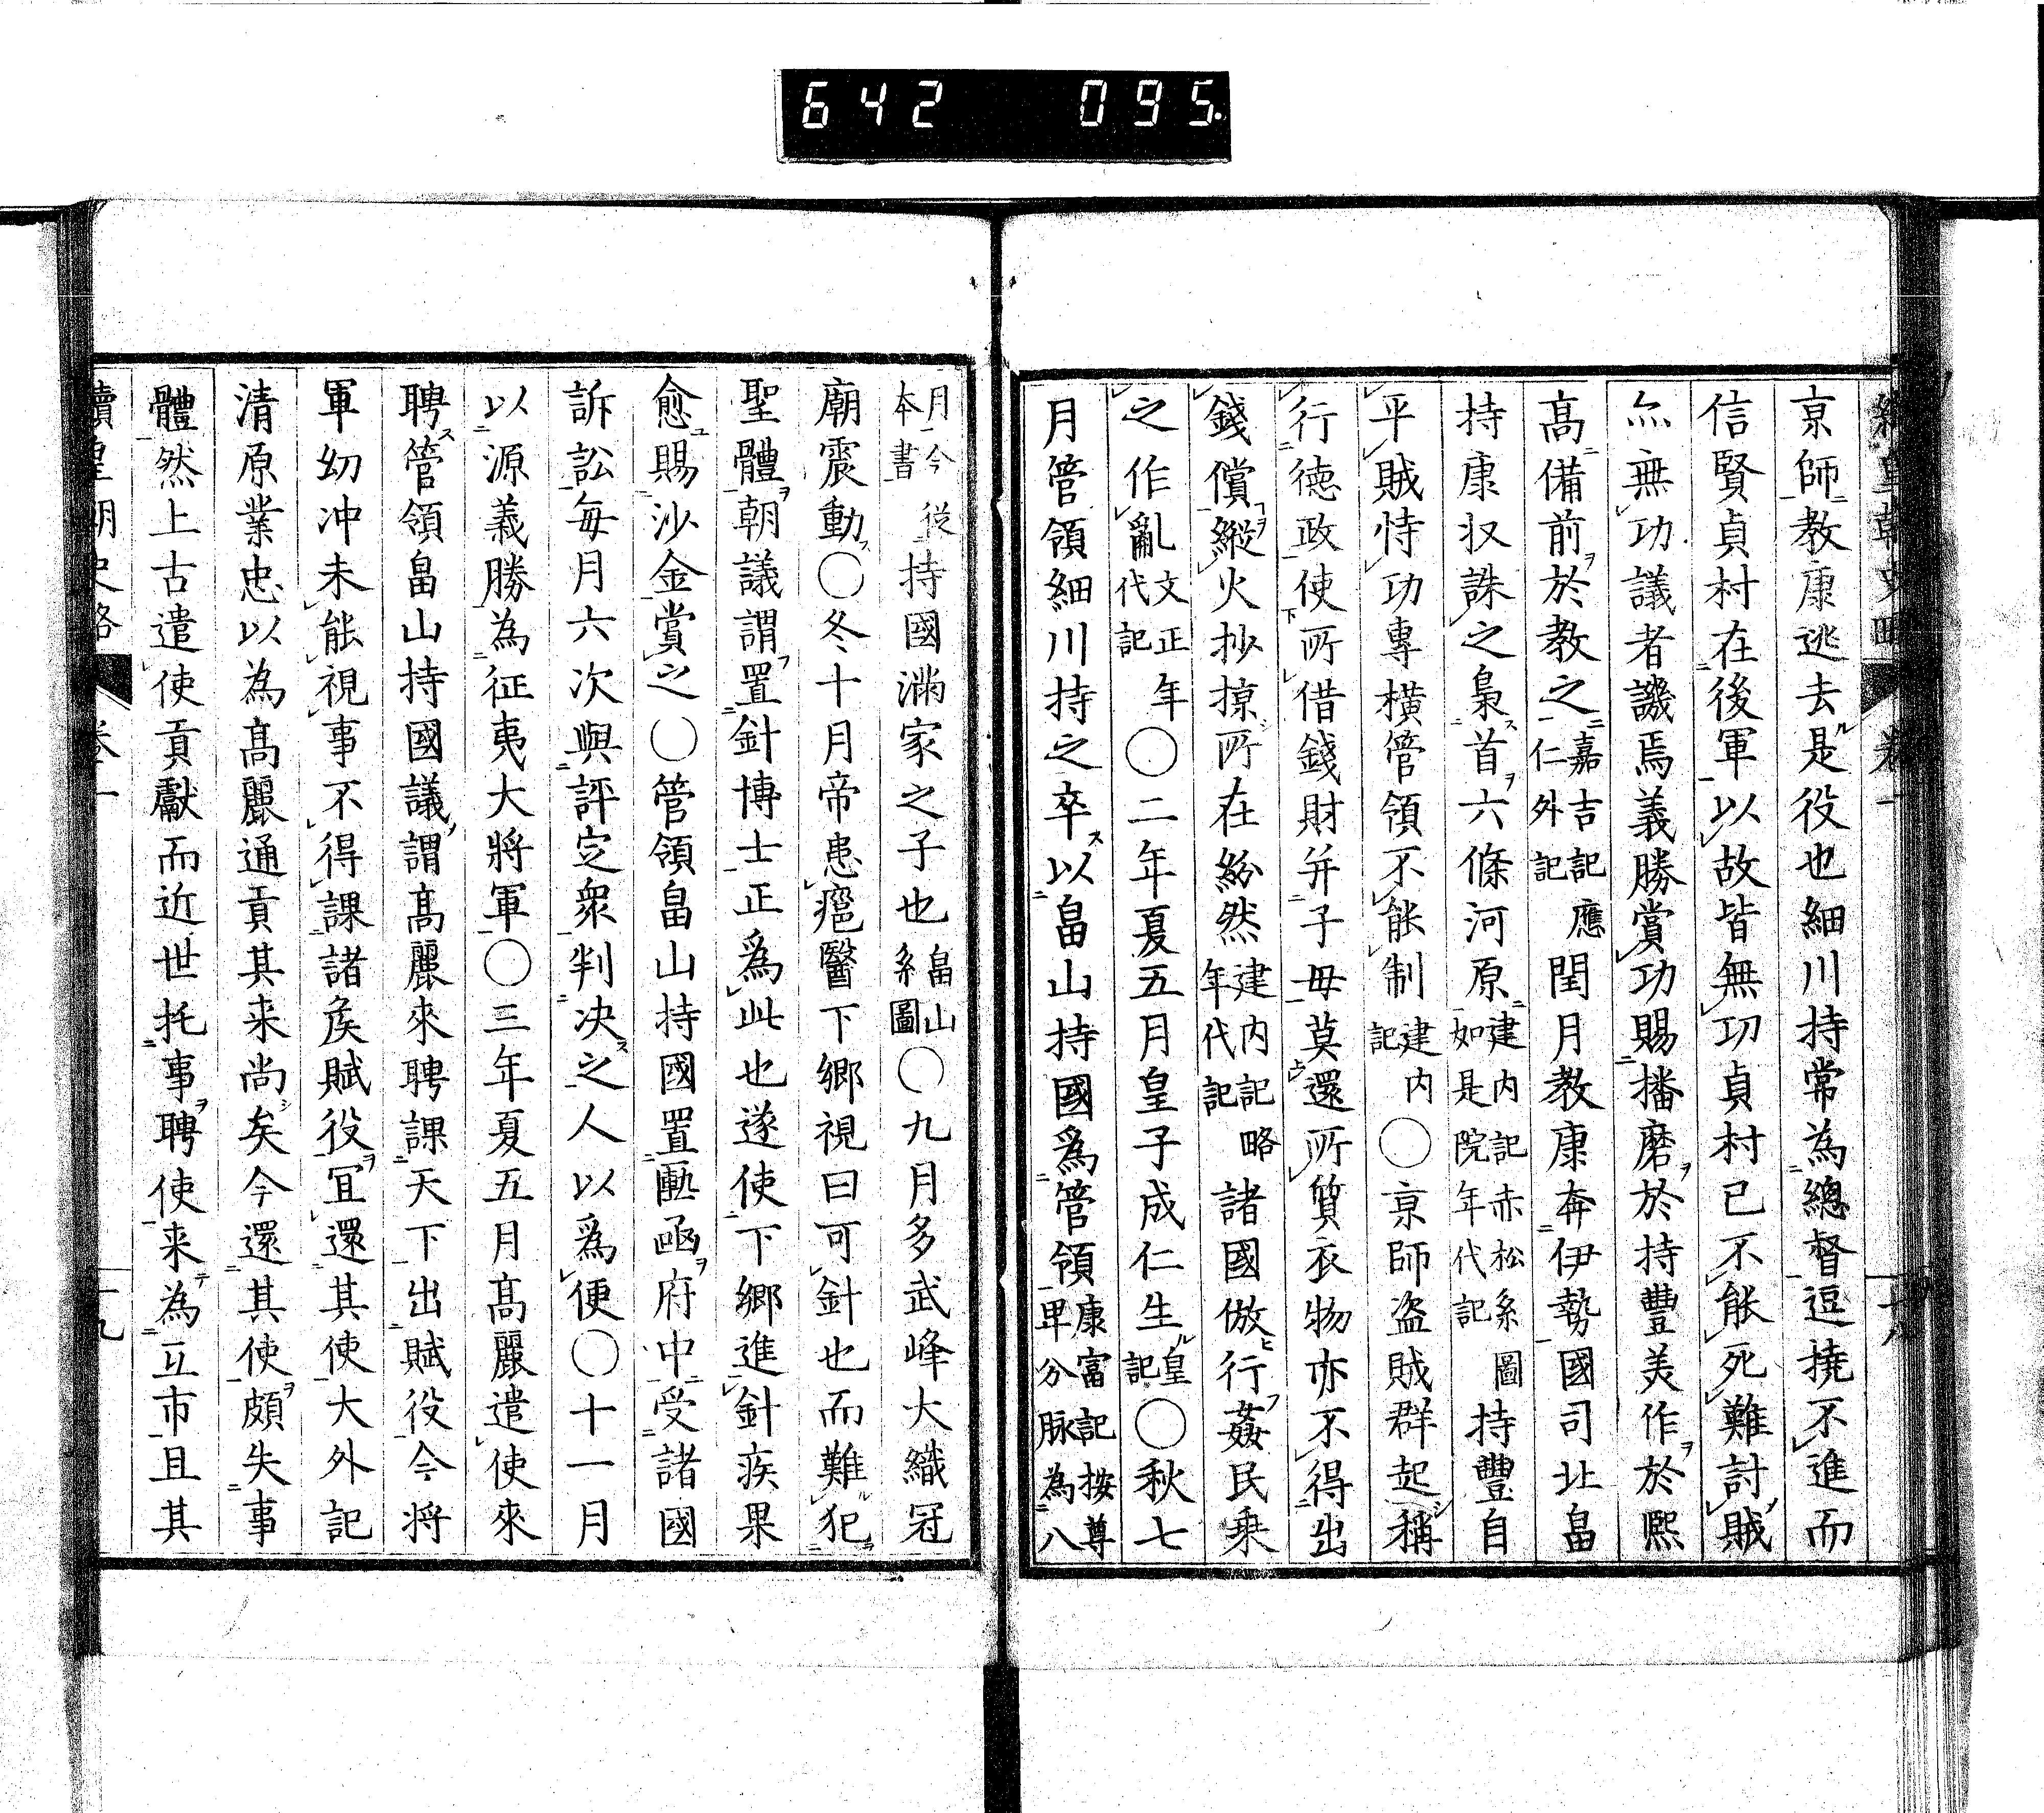 642 095.
續皇朝史略 卷一 十八
亰師教康逃去是役也細川持常為總督逗撓不進而
信賢貞村在後軍以故皆無功貞村已不能死難討賊
亦無功議者譏焉義勝賞功賜播磨於持豐美作於熙
高備前於教之嘉吉記仁外記應閏月教康奔伊勢國司北畠
持康収誅之梟首六條河原建内記赤松系圖如是院年代記持豐自
平賊恃功專橫管領不能制建内記〇亰師盜賊群起稱
行德政使所借錢財并子母莫還所質衣物亦不得出
錢償縱火抄掠所在紛然建内記略年代記諸國倣行姦民乘
之作亂文正年代記〇二年夏五月皇子成仁生皇記〇秋七
月管領細川持之卒以畠山持國爲管領康富記按尊卑分脉為八
月今從本書持國滿家之子也畠山系圖〇九月多武峰大織冠
廟震動〇冬十月帝患瘡醫下鄉視曰可針也而難犯
聖體朝議謂置針博士正爲此也遂使下鄉進針疾果
愈賜沙金賞之〇管領畠山持國置匭凾府中受諸國
訴訟每月六次與評定衆判决之人以爲便〇十一月
以源義勝為征夷大將軍〇三年夏五月高麗遣使來
聘管領畠山持國議謂高麗來聘課天下出賦役今將
軍幼冲未能視事不得課諸矦賦役冝還其使大外記
清原業忠以為高麗通貢其来尚矣今還其使頗失事
體然上古遣使貢獻而近世托事聘使来為互市且其
續皇朝史略 卷一 十九